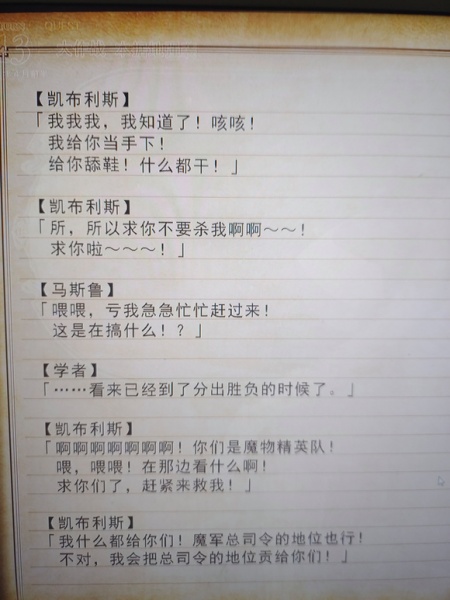 【凯布利斯】
「我我我，我知道了！咳咳！
我给你当手下！
给你舔鞋！什么都干！」
【凯布利斯】
「所，所以求你不要杀我啊啊～～！
求你啦～～～！」
【马斯鲁】
「喂喂，亏我急急忙忙赶过来！
这是在搞什么！？」
【学者】
「……看来已经到了分出胜负的时候了。」
【凯布利斯】
「啊啊啊啊啊啊啊！你们是魔物精英队！
喂，喂喂！在那边看什么啊！
求你们了，赶紧来救我！」
【凯布利斯】
「我什么都给你们！魔军总司令的地位也行！
不对，我会把总司令的地位贡给你们！」